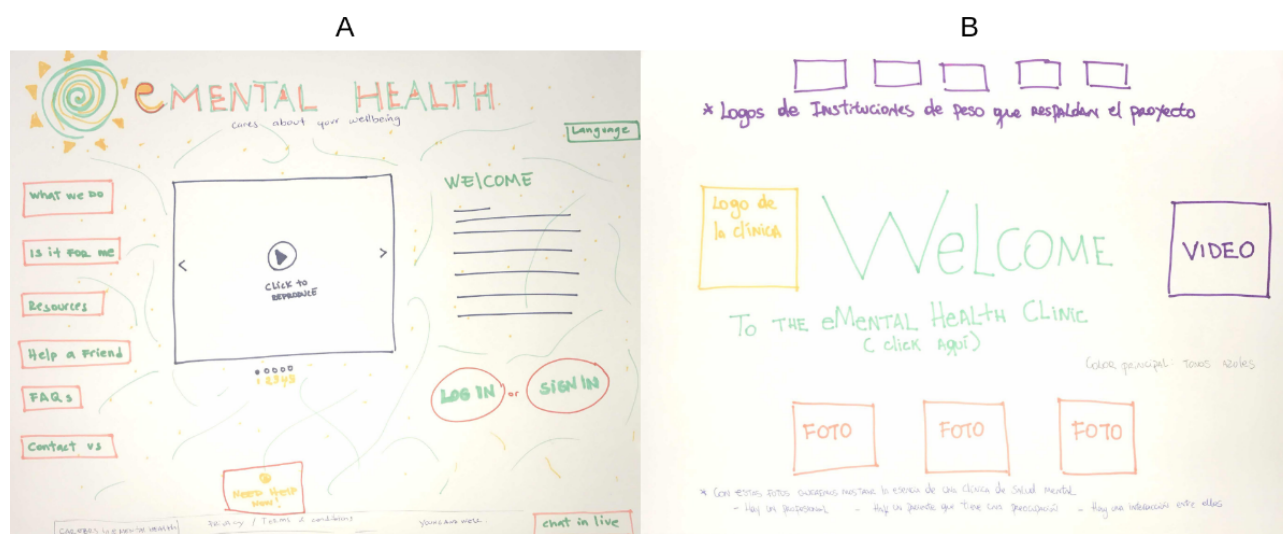 A
B
eMENTAL HEALTH
cares about your wellbeing
Language
What we do
Is it for me
Resources
Help a Friend
FAQs
Contact us
Click to
REPRODUCE
1 2 3 4 5
WELCOME
LOG IN or SIGN IN
Need Help
Now!
Privacy / Terms & conditions
chat in live
* Logos de Instituciones de peso que respaldan el proyecto
Logo de
la clínica
WELCOME
VIDEO
To the eMental Health Clinic
(click aquí)
Color principal: Tonos azules
FOTO
FOTO
FOTO
* Con estas fotos mostrar la esencia de una clínica de salud mental
- Hay un profesional
- Hay un paciente que tiene una preocupación
- Hay una interacción entre ellos